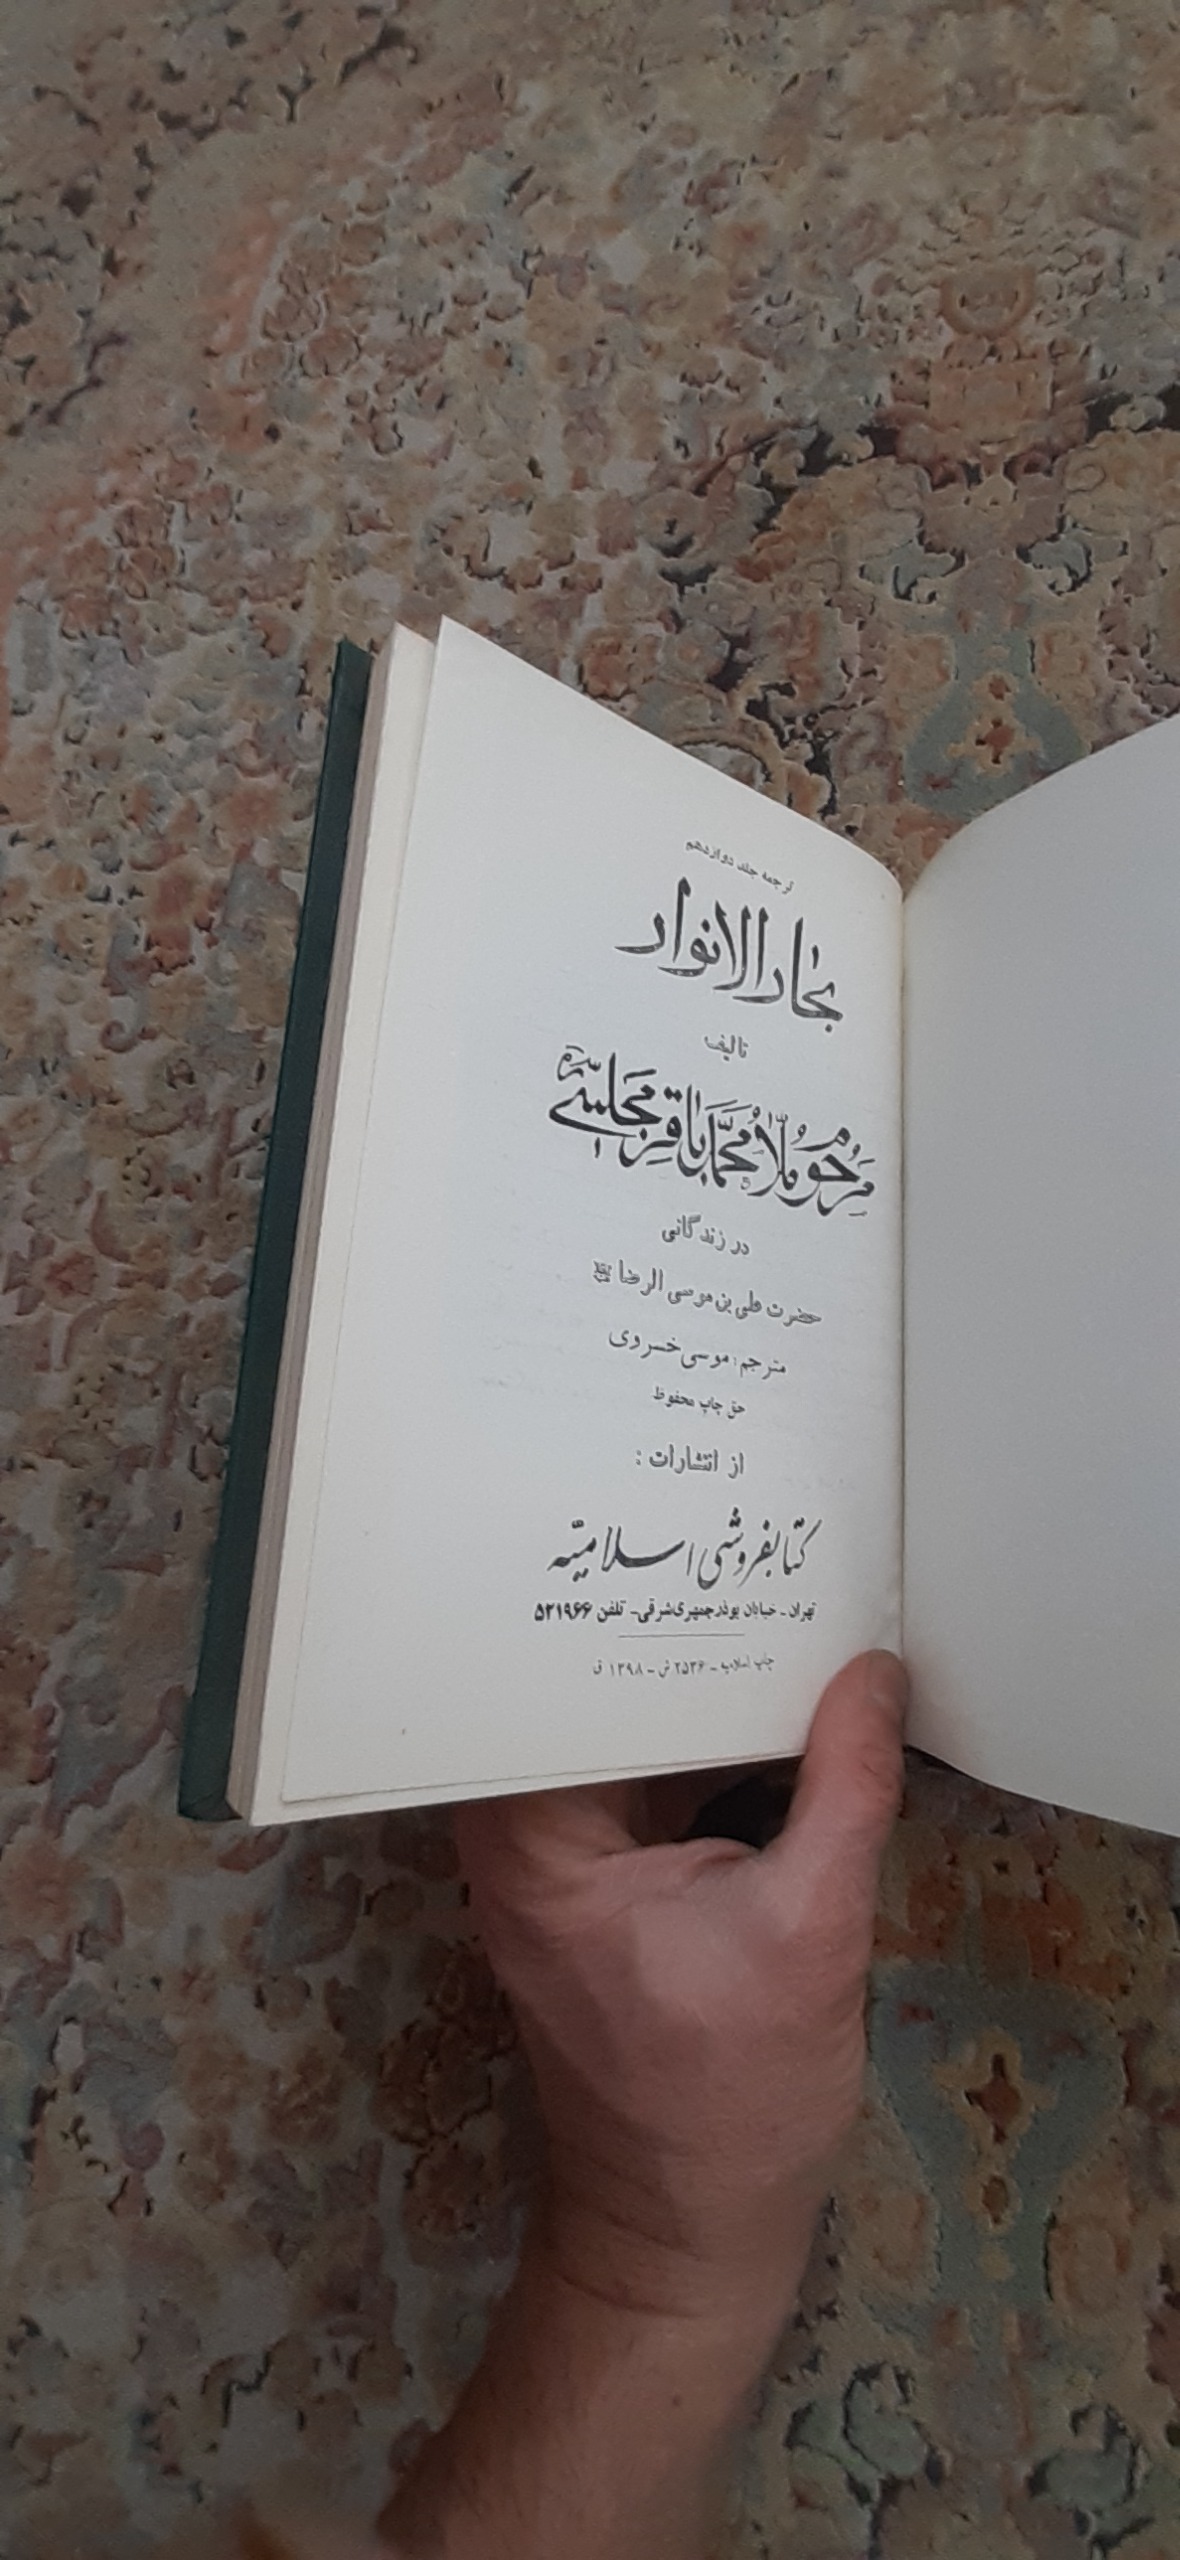 ترجمه جلد دوازدهم
بحارالانوار
تالیف
مرحوم ملا محمد باقر مجلسی
در زندگانی
حضرت علی بن موسی الرضا
مترجم: موسی خسروی
حق چاپ محفوظ
از انتشارات :
کتابفروشی اسلامیّه
تهران - خیابان بوذرجمهری شرقی - تلفن ۵۲۱۹۶۶
چاپ اسلامیه - ۲۵۳۶ ش - ۱۳۹۸ ق